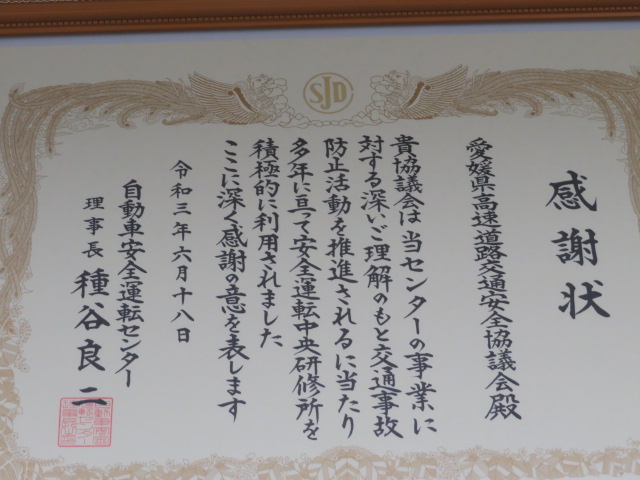 SJDC
感謝状
愛媛県高速道路交通安全協議会殿
貴協議会は当センターの事業に
対する深いご理解のもと交通事故
防止活動を推進されるに当たり
多年に亘って安全運転中央研修所を
積極的に利用されました
ここに深く感謝の意を表します
令和三年六月十八日
自動車安全運転センター
理事長 種谷良二